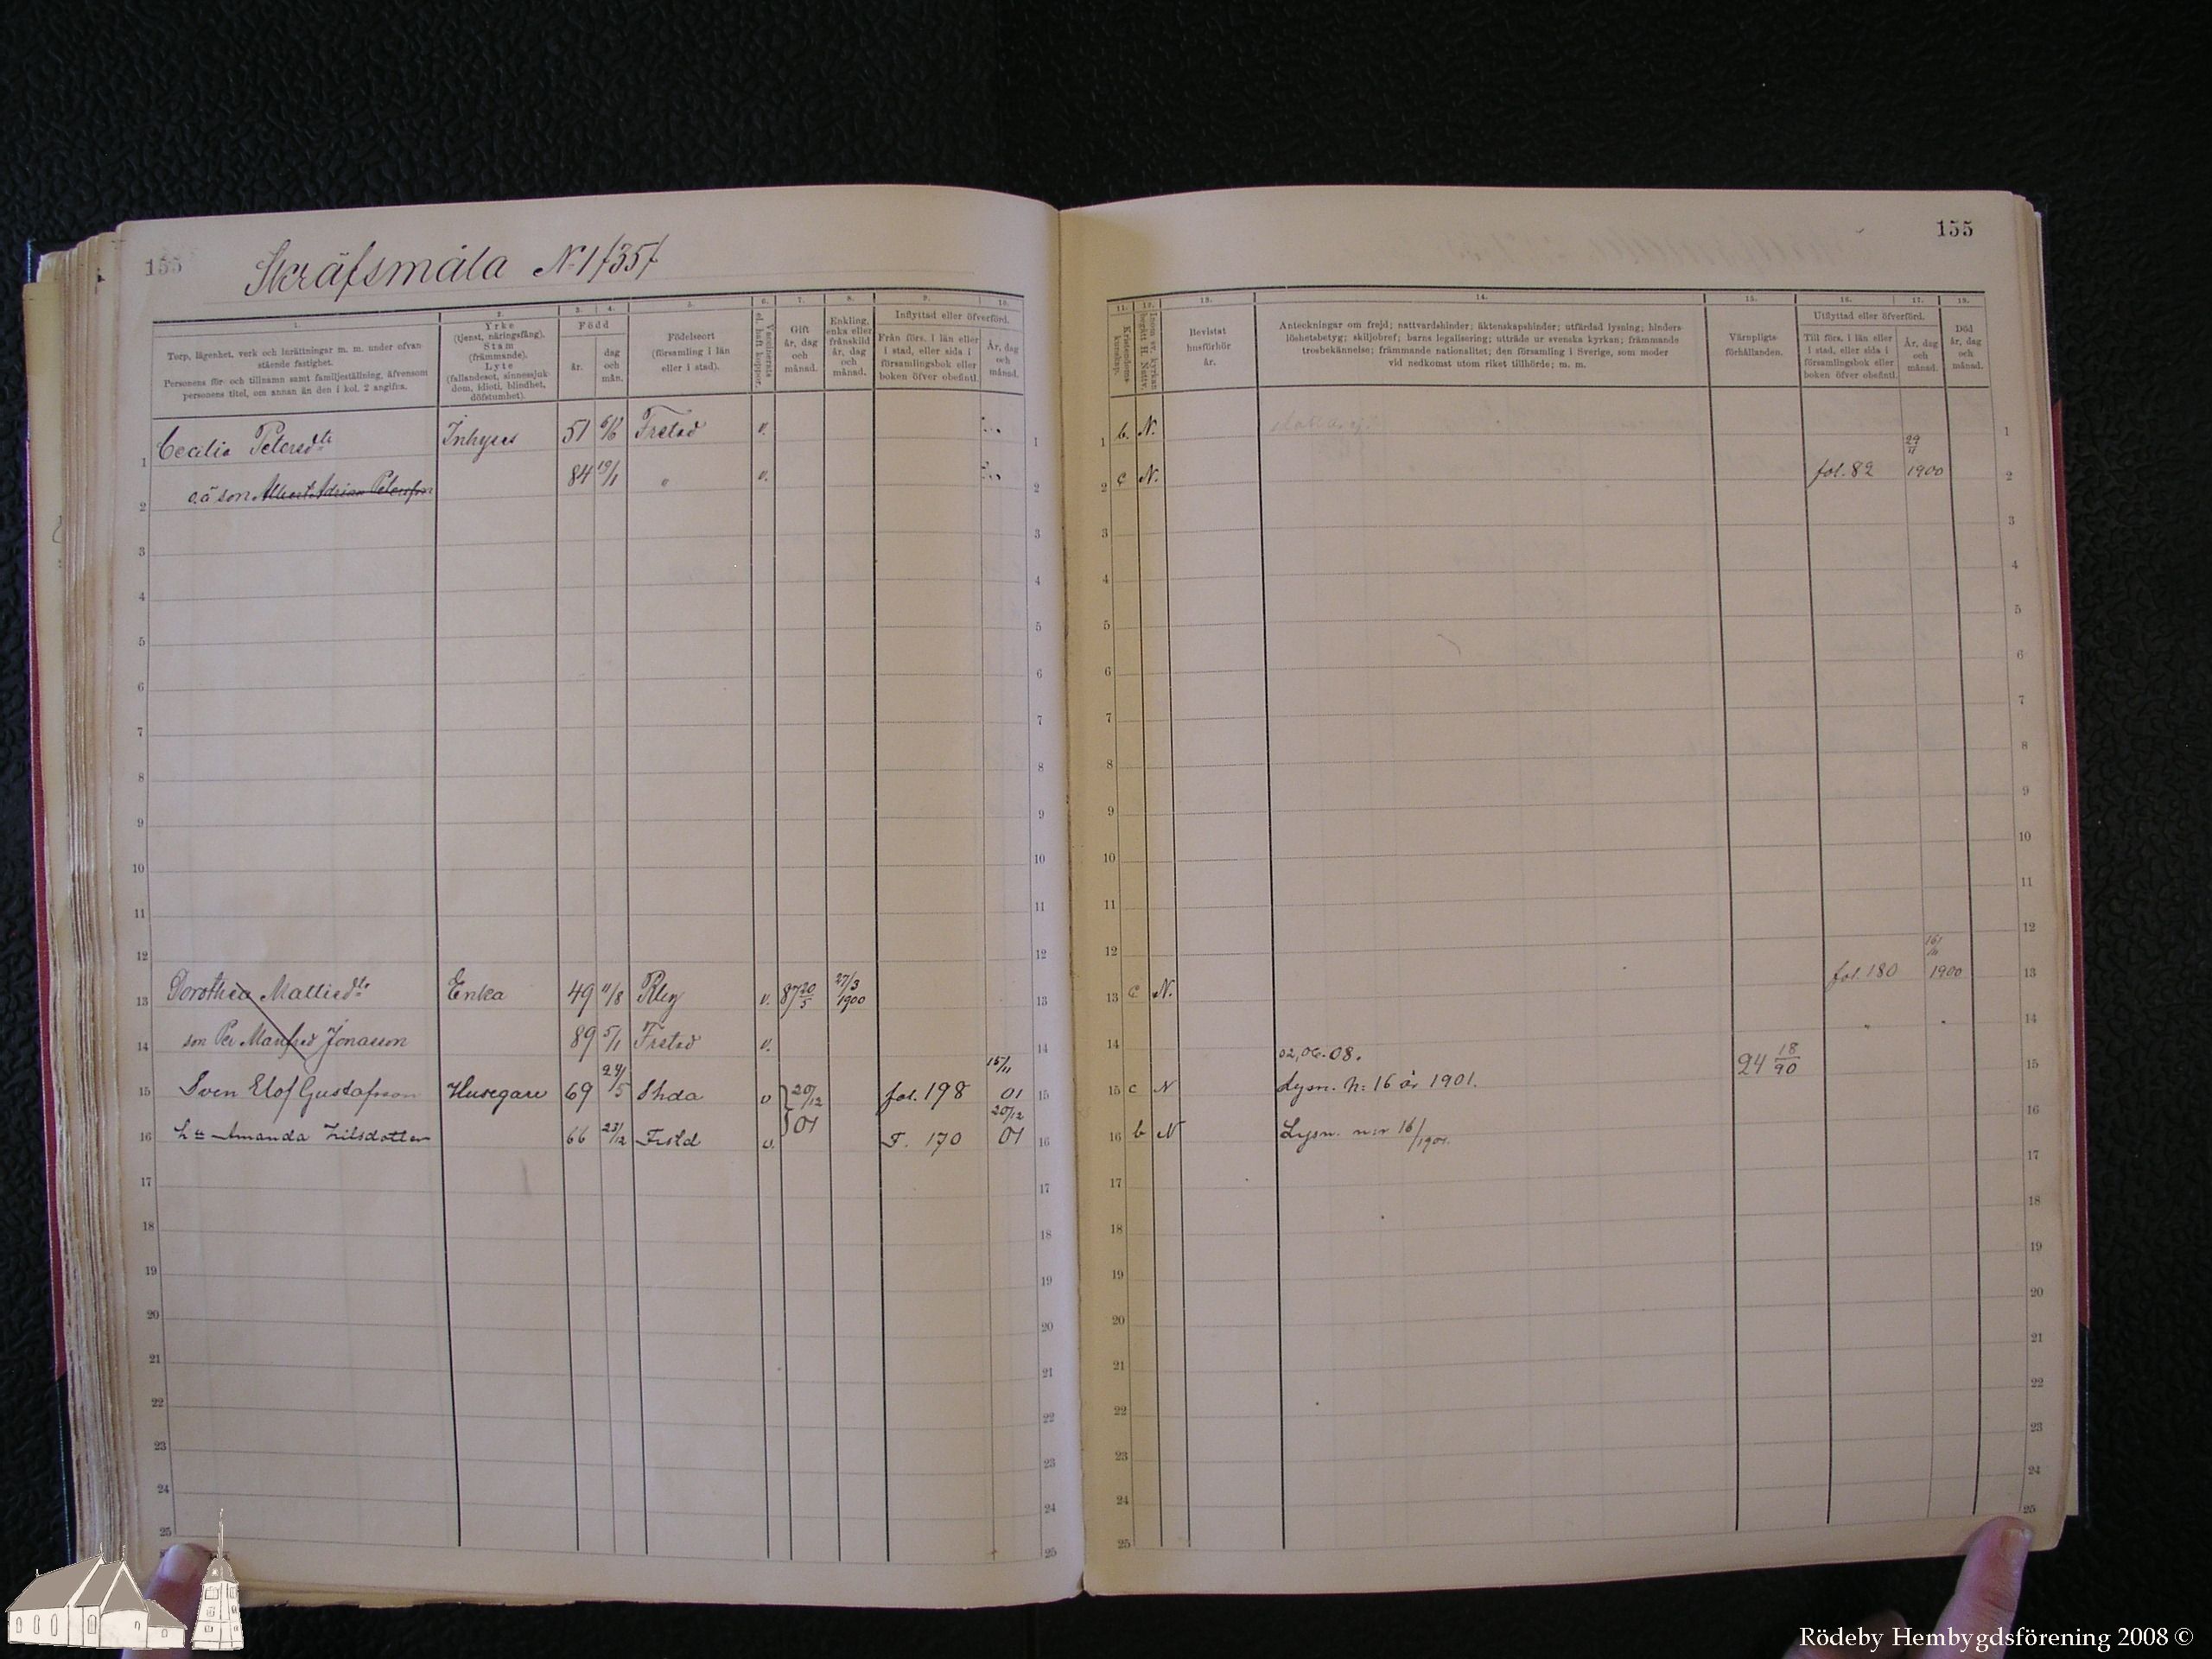 155
Skräfsmåla N:1 /35/
1. 2. 3. 4. 5. 6. 7. 8. 9. 10.
Torp, lägenhet, verk och inrättningar m. m. under ofvan
stående fastighet.
Personens för- och tillnamn samt familjeställning, äfvensom
personens titel, om annan än den i kol. 2 angifna.
Yrke
(tjenst, näringsfång).
Stam
(främmande).
Lyte
(fallandesot, sinnessjuk-
dom, idioti, blindhet,
döfstumhet).
Född
år.
dag
och
mån.
Födelseort
(församling i län
eller i stad).
Vaccinerats
el. haft koppor.
Gift
år, dag
och
månad.
Enkling,
enka eller
frånskild
år, dag
och
månad.
Inflyttad eller öfverförd.
Från förs. i län eller
i stad, eller sida i
församlingsbok eller
boken öfver obefintl.
År, dag
och
månad.
1 Cecilia Petersd:tr Inhyses 51 Frstad v. 1
2 o.ä son Albert Adrian Petersson 84 19/1 " v. 2
3 3
4 4
5 5
6 6
7 7
8 8
9 9
10 10
11 11
12 12
13 Dorothea Mattisd:tr Enka 49 11/8 Rby v. 87 20/5 27/3 1900 13
14 son Per Manfred Jonasson 89 5/1 Frstad v. 14
15 Sven Elof Gustafsson Husegare 69 29/5 Shda v 20/12 01 fol. 198 15/11 01 15
16 h:u Amanda Nilsdotter 66 23/12 Frstd v. F. 170 20/12 01 16
17 17
18 18
19 19
20 20
21 21
22 22
23 23
24 24
25 25
155
11. 12. 13. 14. 15. 16. 17. 18.
Kristendoms-
kunskap.
Inom sv. kyrkan
begått H. Nattv.
Bevistat
husförhör
år.
Anteckningar om frejd; nattvardshinder; äktenskapshinder; utfärdad lysning; hinders-
löshetsbetyg; skiljobref; barns legalisering; utträde ur svenska kyrkan; främmande
trosbekännelse; främmande nationalitet; den församling i Sverige, som moder
vid nedkomst utom riket tillhörde; m. m.
Värnpligts-
förhållanden.
Utflyttad eller öfverförd.
Till förs. i län eller
i stad, eller sida i
församlingsbok eller
boken öfver obefintl.
År, dag
och
månad.
Död
år, dag
och
månad.
1 b. N. 1
2 c N. fol. 82 29/11 1900 2
3 3
4 4
5 5
6 6
7 7
8 8
9 9
10 10
11 11
12 12
13 c N. fol. 180 16/11 1900 13
14 14
02, 06. 08.
15 c N Lysn. N: 16 år 1901. 24 18/90 15
16 b N Lysn. n:r 16/1901. 16
17 17
18 18
19 19
20 20
21 21
22 22
23 23
24 24
25 25
Rödeby Hembygdsförening 2008 ©